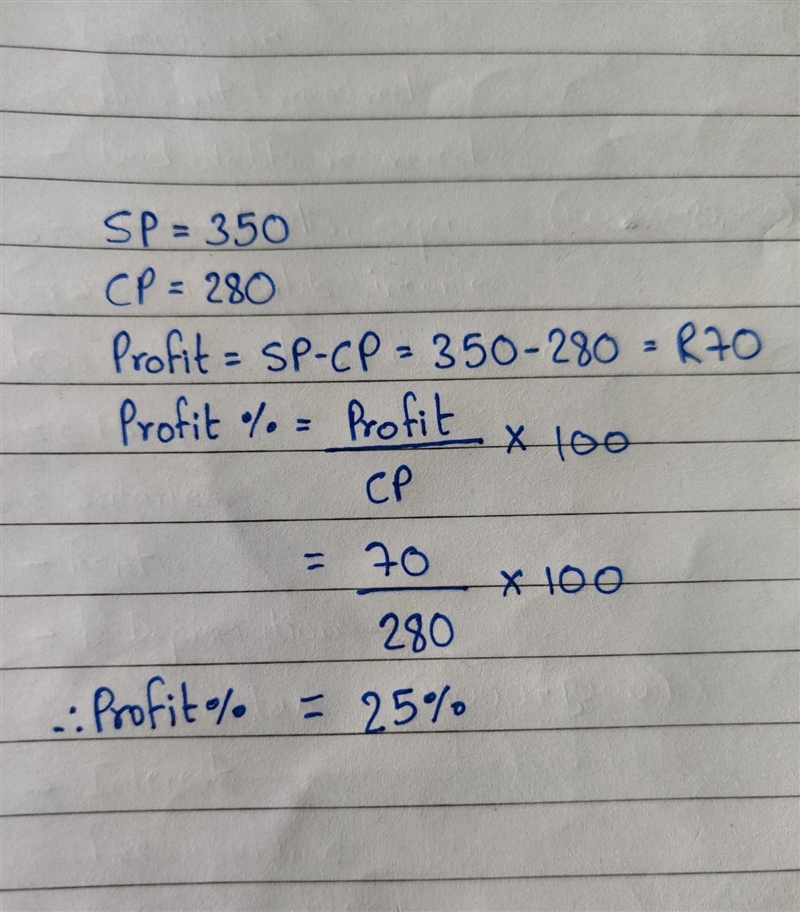 SP = 350
CP = 280
Profit = SP-CP = 350-280 = R70
Profit % = Profit / CP × 100
= 70 / 280 × 100
∴ Profit% = 25%